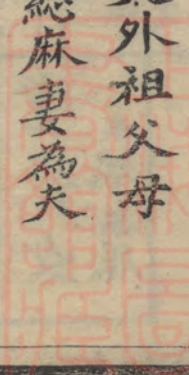 外祖父母
緦麻妻為夫